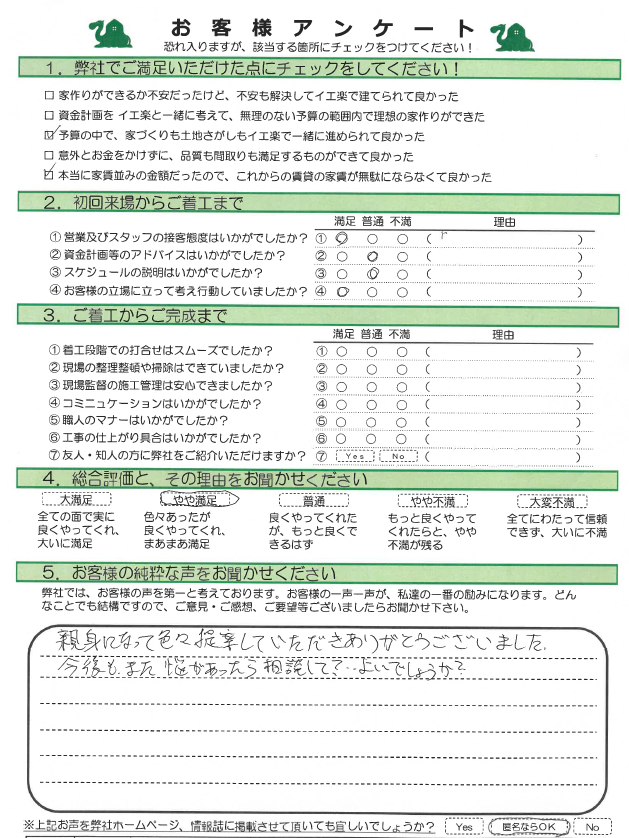 お客様アンケート
恐れ入りますが、該当する箇所にチェックをつけてください！
１．弊社でご満足いただけた点にチェックをしてください！
□ 家作りができるか不安だったけど、不安も解決してイエ楽で建てられて良かった
□ 資金計画を イエ楽と一緒に考えて、無理のない予算の範囲内で理想の家作りができた
☑ 予算の中で、家づくりも土地さがしもイエ楽で一緒に進められて良かった
□ 意外とお金をかけずに、品質も間取りも満足するものができて良かった
☑ 本当に家賃並みの金額だったので、これからの賃貸の家賃が無駄にならなくて良かった
２．初回来場からご着工まで
満足 普通 不満 理由
① 営業及びスタッフの接客態度はいかがでしたか？ ① ○ ○ ○ （ ）
② 資金計画等のアドバイスはいかがでしたか？ ② ○ ○ ○ （ ）
③ スケジュールの説明はいかがでしたか？ ③ ○ ○ ○ （ ）
④ お客様の立場に立って考え行動していましたか？ ④ ○ ○ ○ （ ）
３．ご着工からご完成まで
満足 普通 不満 理由
① 着工段階での打合せはスムーズでしたか？ ① ○ ○ ○ （ ）
② 現場の整理整頓や掃除はできていましたか？ ② ○ ○ ○ （ ）
③ 現場監督の施工管理は安心できましたか？ ③ ○ ○ ○ （ ）
④ コミニュケーションはいかがでしたか？ ④ ○ ○ ○ （ ）
⑤ 職人のマナーはいかがでしたか？ ⑤ ○ ○ ○ （ ）
⑥ 工事の仕上がり具合はいかがでしたか？ ⑥ ○ ○ ○ （ ）
⑦ 友人・知人の方に弊社をご紹介いただけますか？ ⑦ Yes No （ ）
４．総合評価と、その理由をお聞かせください
大満足 やや満足 普通 やや不満 大変不満
全ての面で実に 色々あったが 良くやってくれた もっと良くやって 全てにわたって信頼
良くやってくれ、 良くやってくれ、 が、もっと良くで くれたらと、やや できず、大いに不満
大いに満足 まあまあ満足 きるはず 不満が残る
５．お客様の純粋な声をお聞かせください
弊社では、お客様の声を第一と考えております。お客様の一声一声が、私達の一番の励みになります。どん
なことでも結構ですので、ご意見・ご感想、ご要望等ございましたらお聞かせ下さい。
親身になって色々提案していただきありがとうございました。
今後も、また 悩があったら相談して？‥よいでしょうか？
※上記お声を弊社ホームページ、情報誌に掲載させて頂いても宜しいでしょうか？ Yes 匿名ならOK No